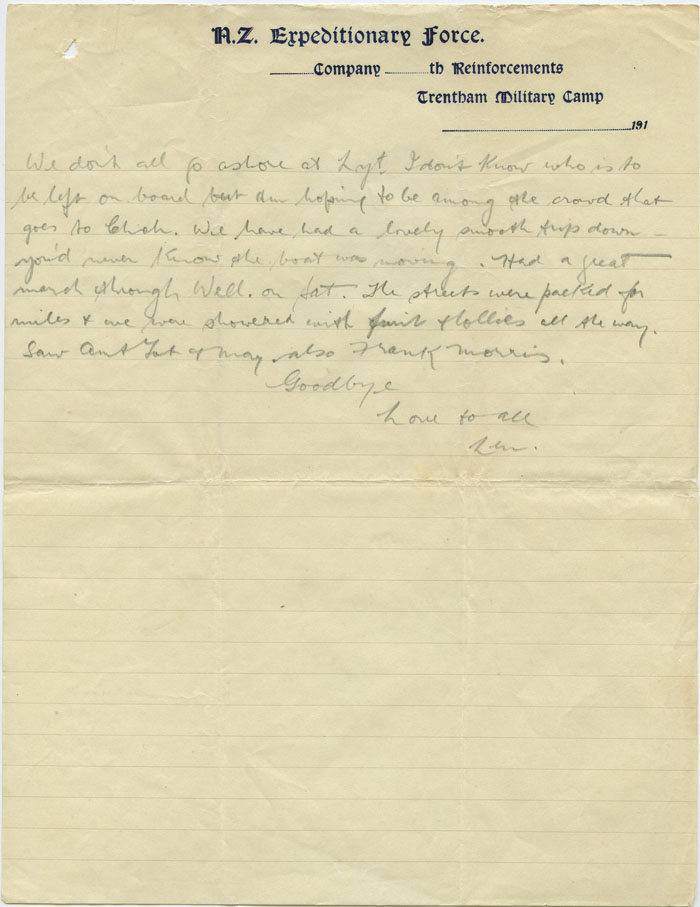 N.Z. Expeditionary Force.
Company th Reinforcements
Trentham Military Camp
191
We don't all go ashore at Lyt. I don't know who is to
be left on board but am hoping to be among the crowd that
goes to Chch. We have had a lovely smooth trip down -
you'd never know the boat was moving. Had a great
march through Well. on Sat. The streets were packed for
miles & we were showered with fruit & lollies all the way.
Saw Aunt & May also Frank Morris.
Goodbye
Love to all
Len.